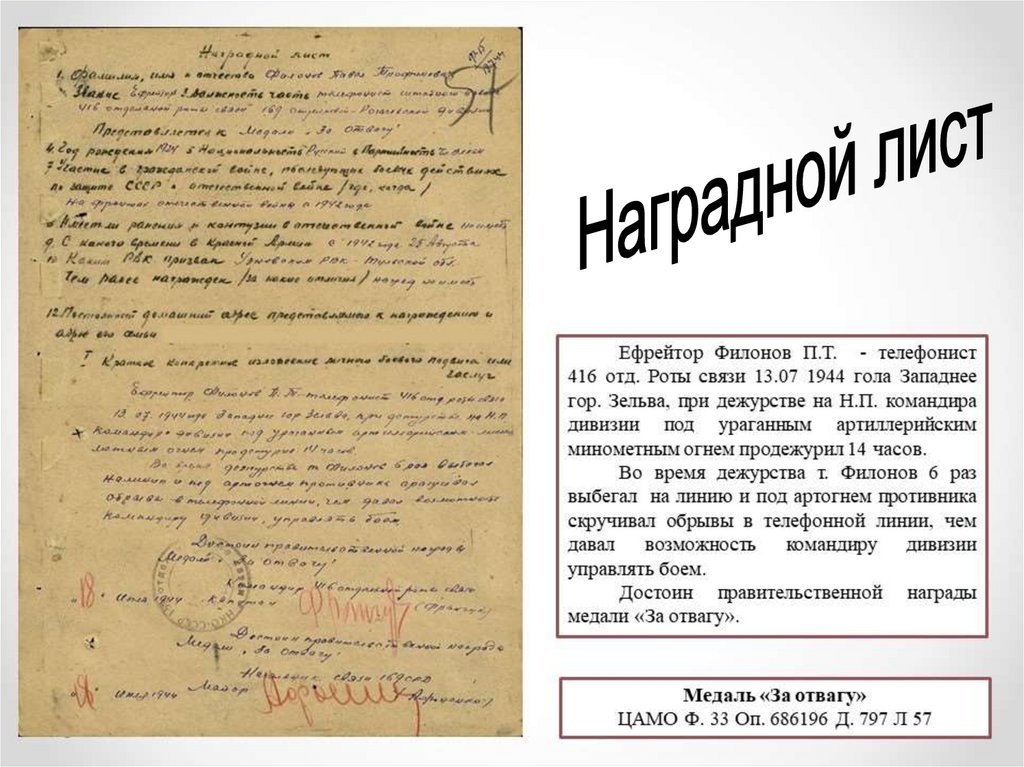 Наградной лист
1. Фамилия, имя и отчество Филонов Павел Трофимович
Звание Ефрейтор 2 должность часть телефонист
416 отдельной роты связи 169 стрелковой Рогачевской
Представляется к Медали "За отвагу"
4. Год рождения 1924 5 Национальность Русский 6 Партийность
7 Участие в гражданской войне, последующих боевых действиях
по защите СССР и отечественной войне /где, когда/
На фронтах отечественной войны с 1942 года
Имеет ли ранения и контузии в отечественной войне
9. С какого времени в Красной Армии с 1942 года 25 Августа
10 Каким РВК призван РВК - Тульской обл.
Чем ранее награжден /за какие отличия/
12. Постоянный домашний адрес представляемого к награждению и
адрес его семьи
I Краткое конкретное изложение личного боевого подвига или
заслуг
Ефрейтор Филонов П. Т. телефонист 416 отд. роты связи
13.07.1944 года Западнее гор Зельва, при дежурстве на Н.П.
Командира дивизии под ураганным артиллерийским
огнем продежурил 14 часов.
Во время дежурства т. Филонов 6 раз выбегал
на линию и под артогнем противника скручивал
обрывы в телефонной линии, чем давал возможность
командиру дивизии, управлять боем.
Достоин правительственной награды
Медали "За отвагу"
Командир 416 отдельной роты связи
"18" июля 1944 Капитан
Достоин правительственной награды
Медали "За отвагу"
Начальник связи 169
июля 1944 Майор
57
Наградной лист
Ефрейтор Филонов П.Т. - телефонист
416 отд. Роты связи 13.07 1944 гола Западнее
гор. Зельва, при дежурстве на Н.П. командира
дивизии под ураганным артиллерийским
минометным огнем продежурил 14 часов.
Во время дежурства т. Филонов 6 раз
выбегал на линию и под артогнем противника
скручивал обрывы в телефонной линии, чем
давал возможность командиру дивизии
управлять боем.
Достоин правительственной награды
медали «За отвагу».
Медаль «За отвагу»
ЦАМО Ф. 33 Оп. 686196 Д. 797 Л 57